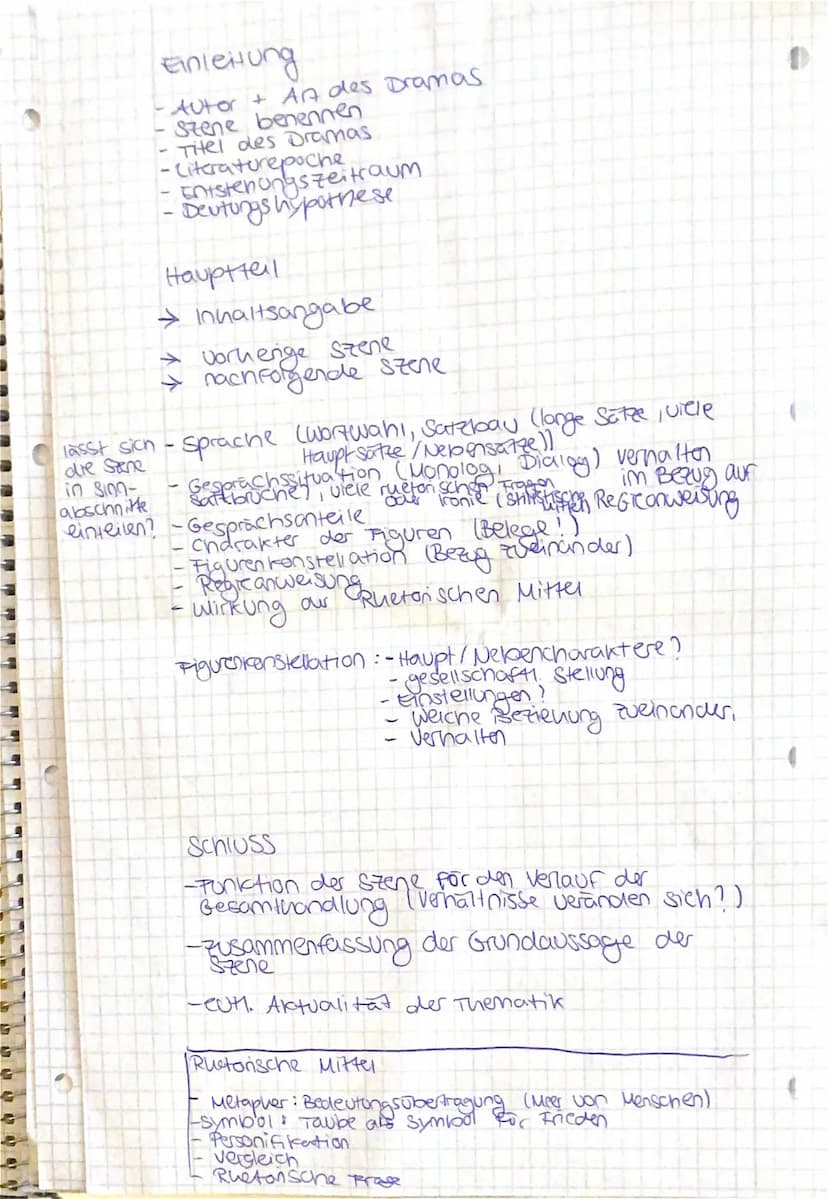 Einleitung
- Autor + Art des Dramas
- Szene benennen
- Titel des Dramas
- Literaturepoche
- Entstehungszeitraum
- Deutungshypothese
Hauptteil
→ Inhaltsangabe
→ vorherige Szene
→ nachfolgende Szene
lässt sich
die Szene
in Sinn-
abschnitte
einteilen?
- Sprache (Wortwahl, Satzbau (lange Sätze, viele
Hauptsätze/Nebensätze))
- Gesprächssituation (Monolog, Dialog) verhalten
Satzbrüche), viele rhetorischen Fragen im Bezug auf
oder Ironie (stilistische Mitteln Regieanweisung
- Gesprächsanteile
- Charakter der Figuren (Belege!)
- Figurenkonstellation (Bezug zueinander)
- Regieanweisung
- Wirkung der Rhetorischen Mittel
Figurenkonstellation: - Haupt/Nebencharaktere?
- gesellschaftl. Stellung
- Einstellungen?
- Welche Beziehung zueinander,
- Verhalten
Schluss
- Funktion der Szene für den Verlauf der
Gesamthandlung (Verhältnisse veränden sich?)
- Zusammenfassung der Grundaussage der
Szene
- evtl. Aktualität der Thematik
Rhetorische Mittel
- Metapher: Bedeutungsübertragung (Meer von Menschen)
- Symbol: Taube als Symbol für Frieden
- Personifikation
- Vergleich
- Rhetorische Frage